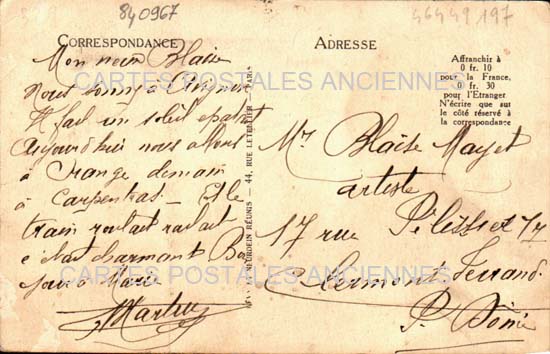 840967
46449 197
CORRESPONDANCE
ADRESSE
Affranchir à
0 fr. 10
pour la France,
0 fr. 30
pour l'Etranger
N'écrire que sur
le côté réservé à
la correspondance
CARTES POSTALES ANCIENNES
Mon Blaise
Nous à Avignon
Il fait un soleil epatant
aujourd'hui nous allons
à Orange demain
à Carpentras - Et le
train roulait roulait
charmant
Marie
Martin
RÉUNIS — 44, RUE LETELLIER - PARIS
Mr Blaise Mayet
artiste
17 rue
Clermont Ferrand
P. Dôme
CARTES POSTALES ANCIENNES